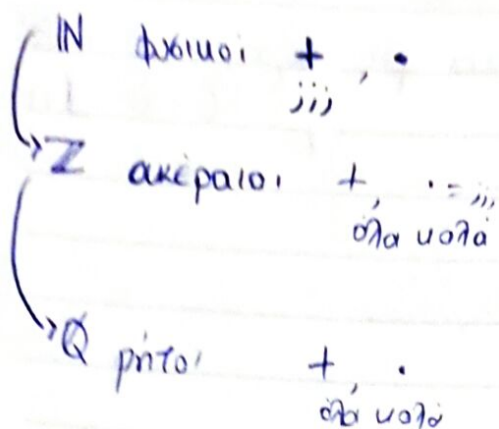 ℕ φυσικοι + , ·
;;;
ℤ ακέραιοι +, · = ;;,
όλα καλά
ℚ ρητοι +, ·
όλα καλά